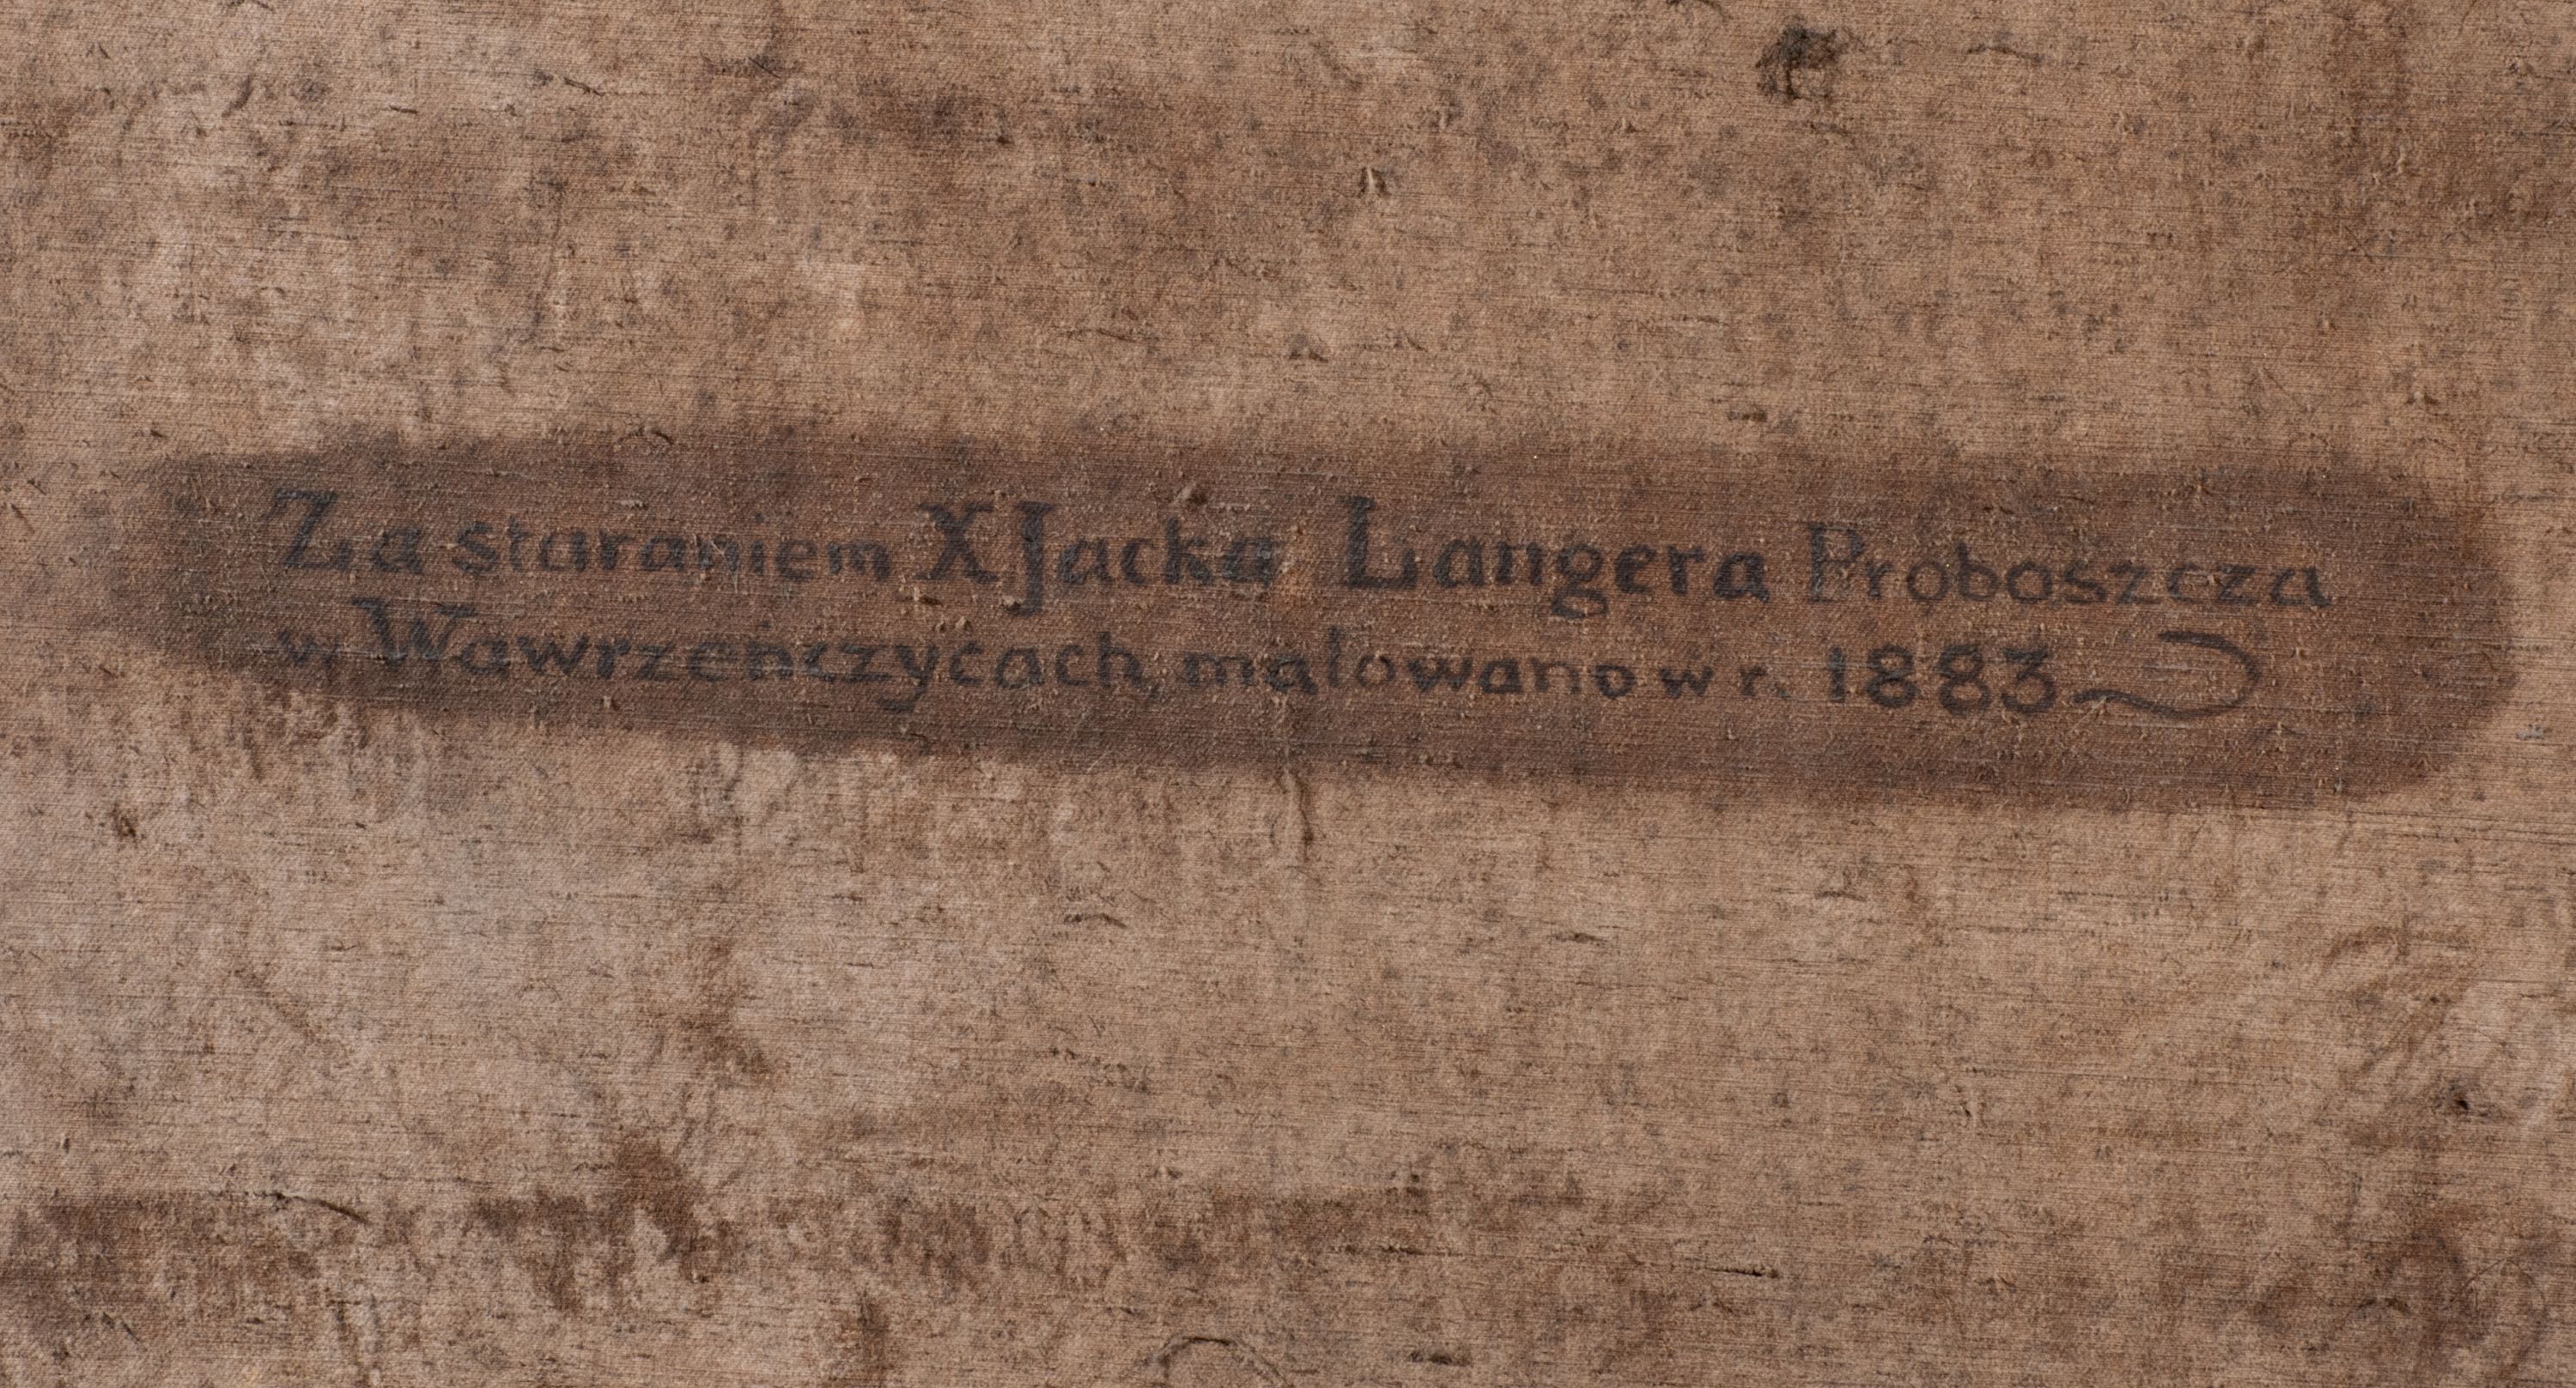 Za staraniem X Jacka Langera Proboszcza
w Wawrzeńczycach, malowano w r. 1883